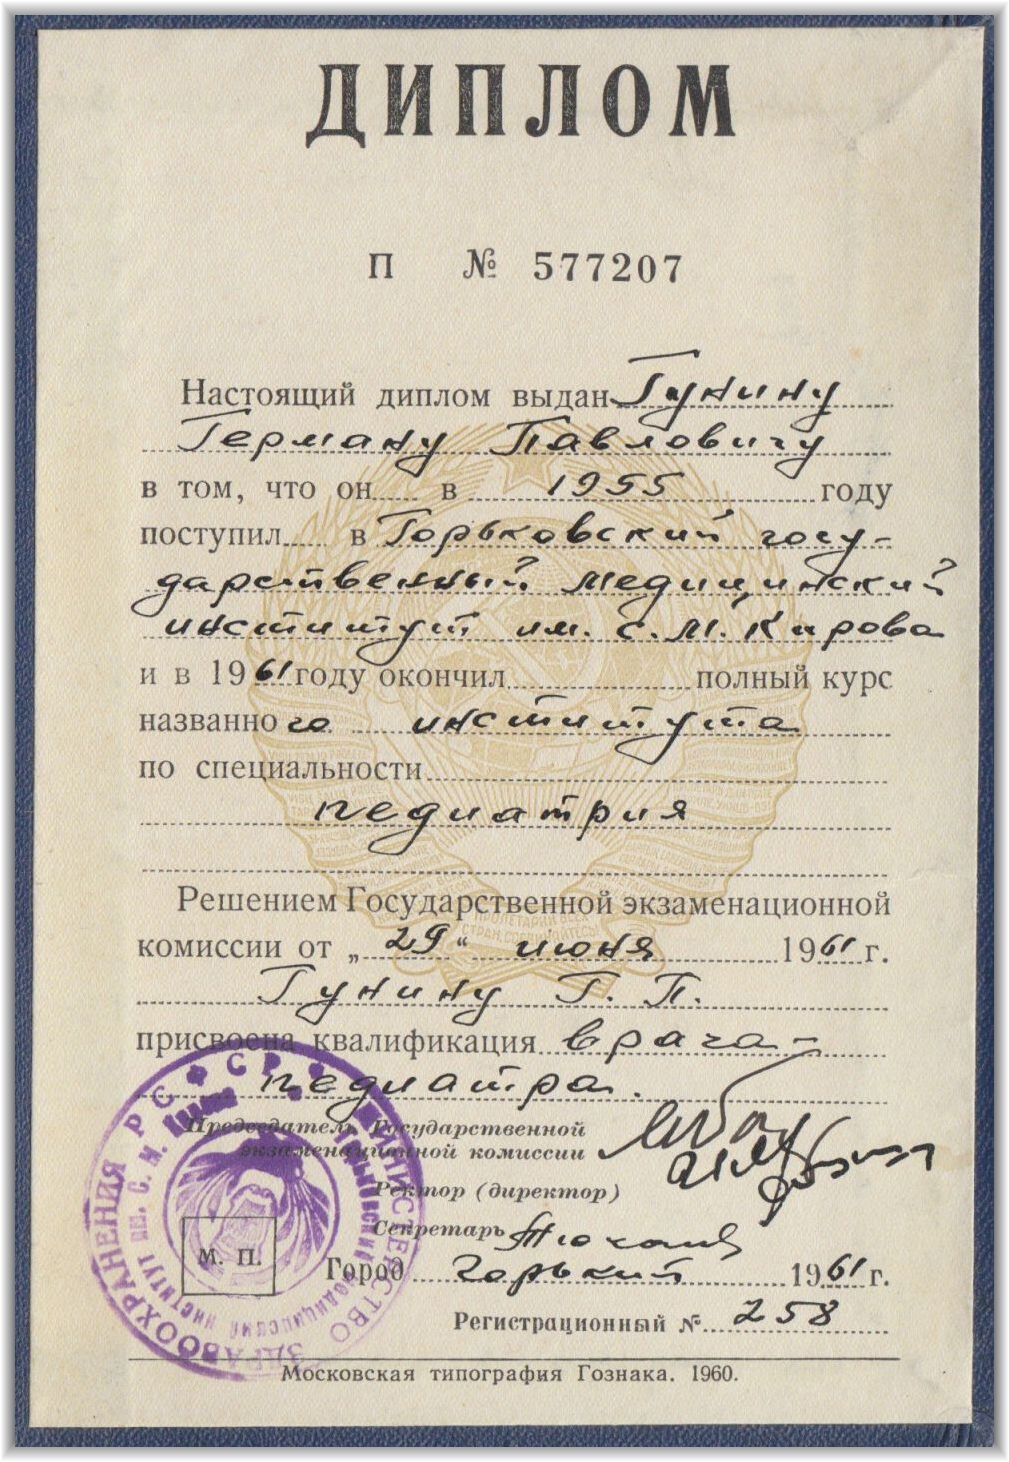 ДИПЛОМ
П № 577207
Настоящий диплом выдан Гунину
Герману Павловичу
в том, что он в 1955 году
поступил в Горьковский госу-
дарственный медицинский
институт им. С. М. Кирова
и в 1961 году окончил полный курс
названного института
по специальности
педиатрия
Решением Государственной экзаменационной
комиссии от „29“ июня 1961 г.
Гунину Г. П.
присвоена квалификация врача-
педиатра.
Председатель Государственной
экзаменационной комиссии
Ректор (директор)
Секретарь
М. П.
Город Горький 1961 г.
Регистрационный № 258
Московская типография Гознака. 1960.
МИНИСТЕРСТВО ЗДРАВООХРАНЕНИЯ РСФСР